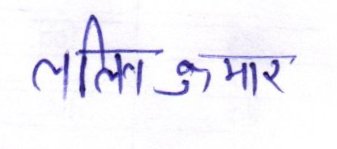 ललित कुमार